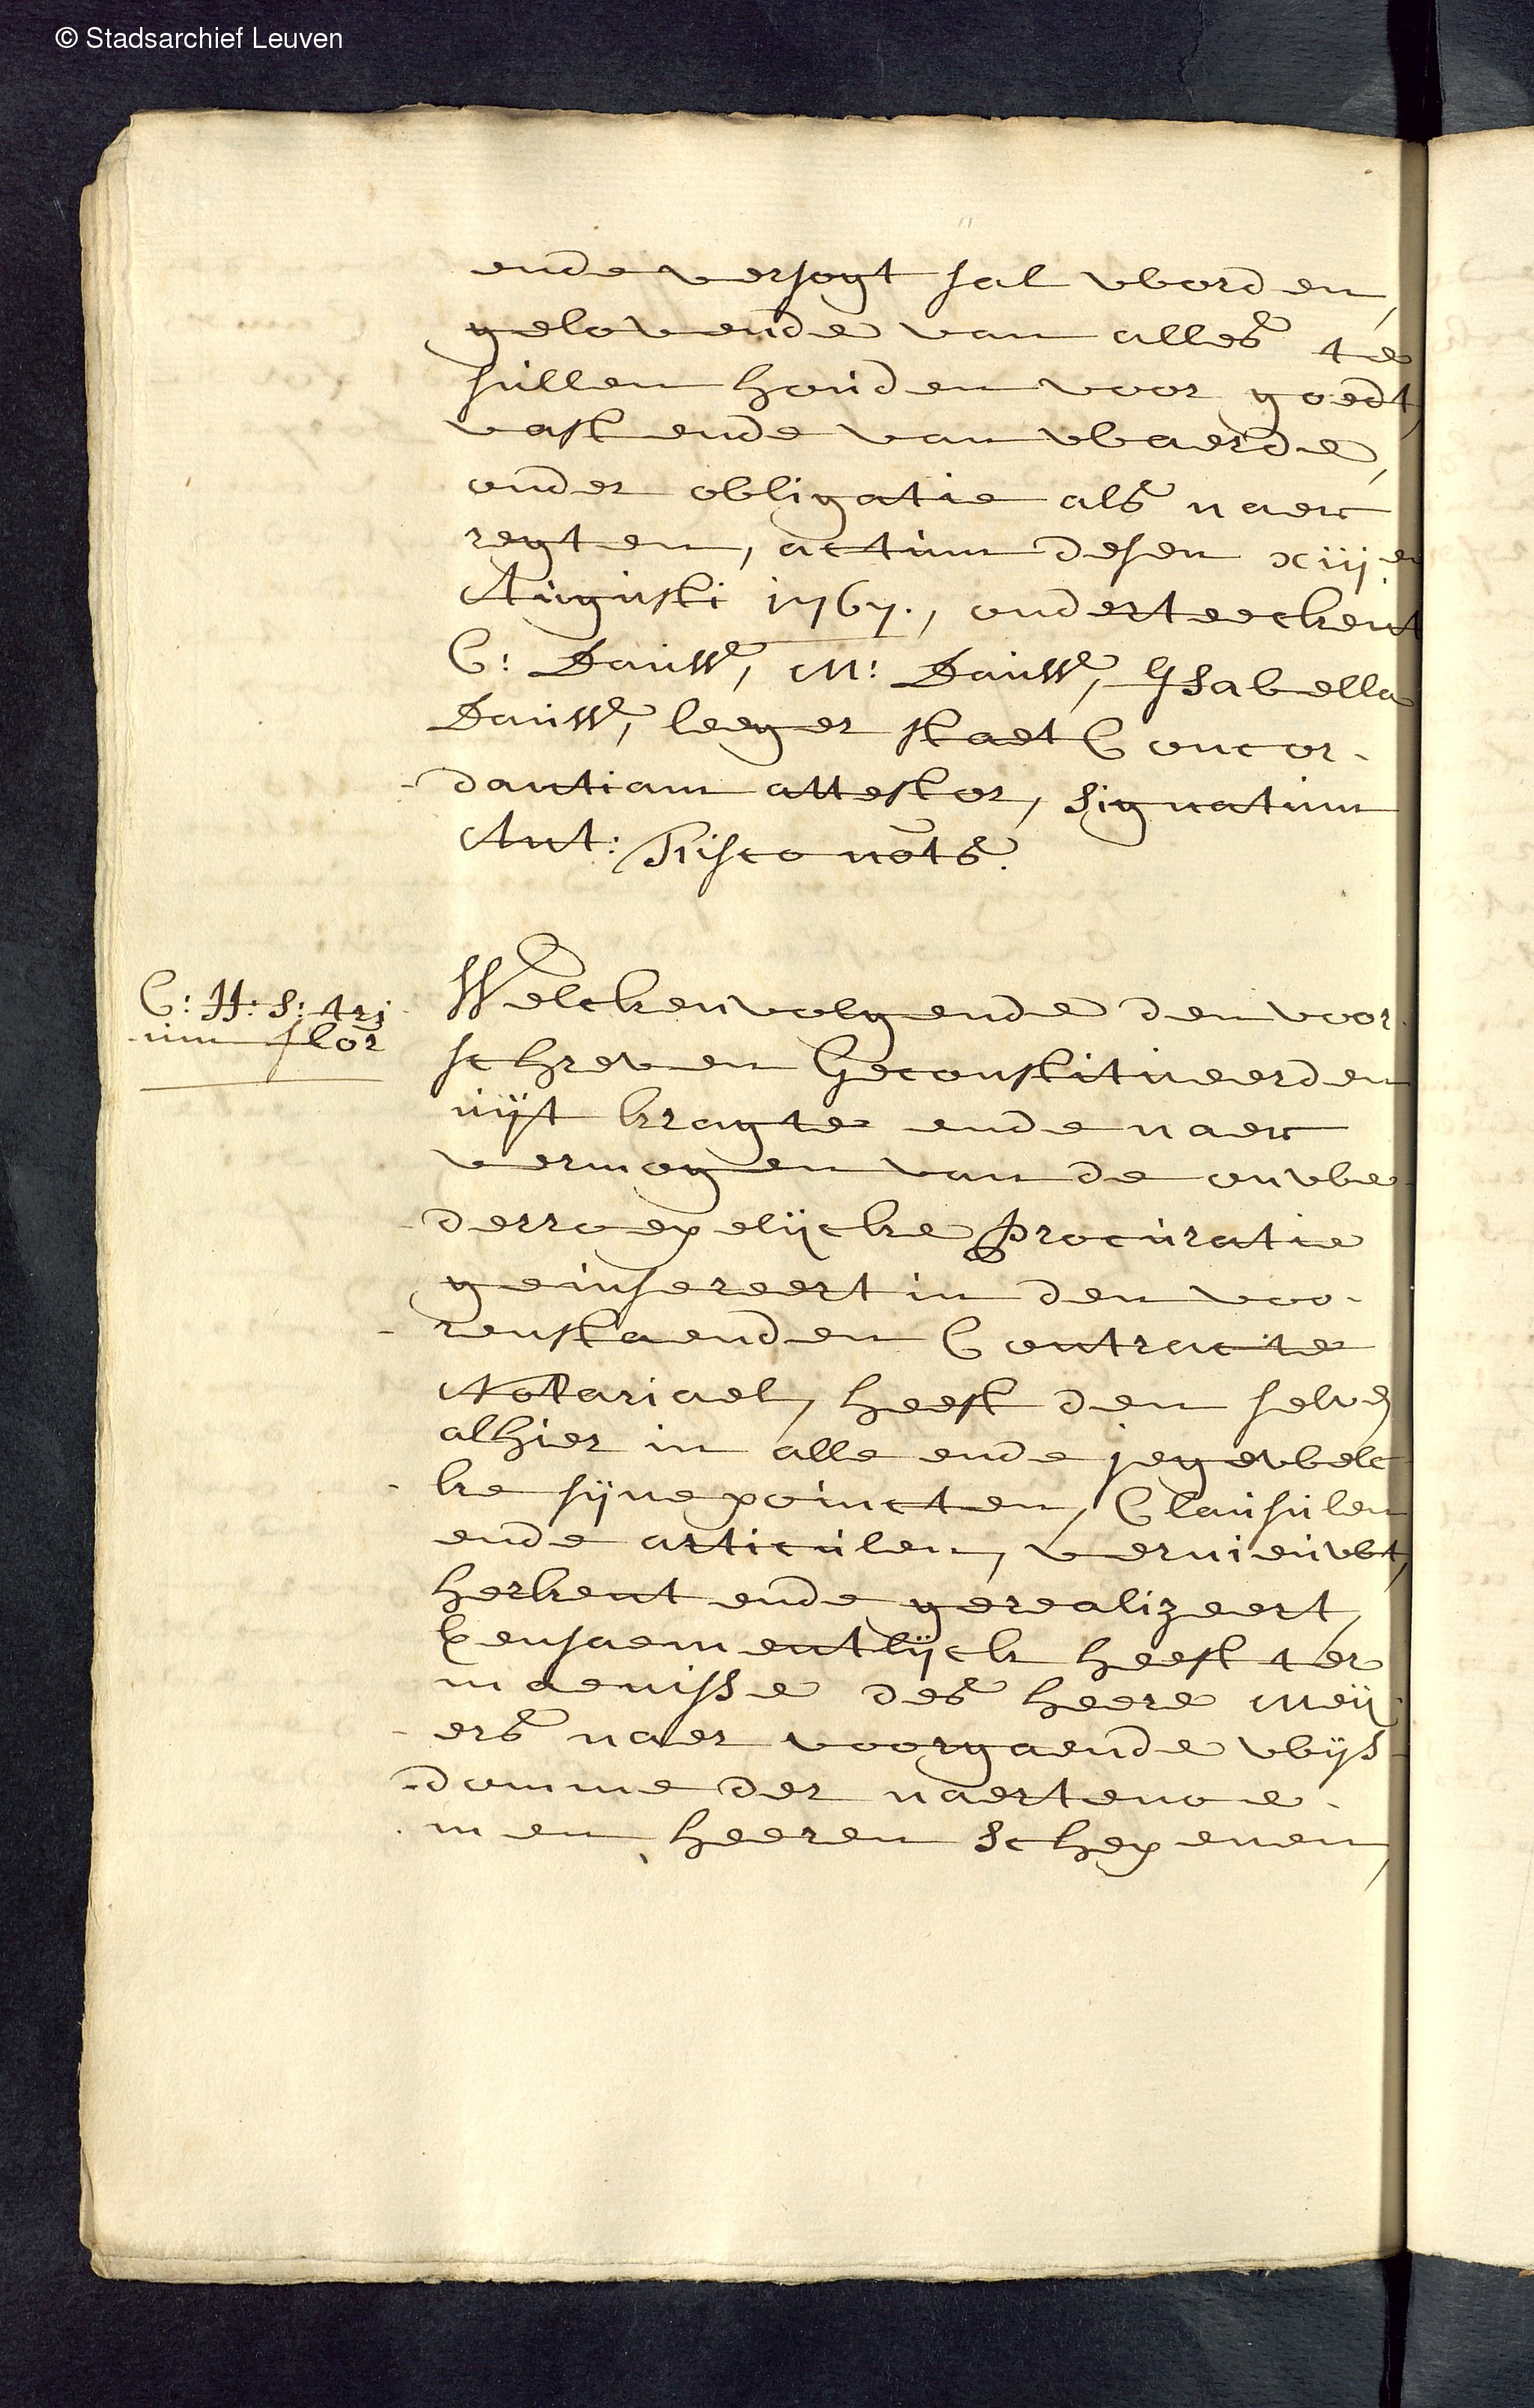 © Stadsarchief Leuven
ende versogt sal worden,
gelovende van alles te
sullen houden voor goedt,
vast ende van waerde,
onder obligatie als naer
regten, actum desen xiij en
Augusti 1767., onderteeckent
C: Dauw, M: Dauw, Ysabella
Dauw, leeger staet Concor-
-dantiam attestor, signatum
Ant: Tisco nots.
C: H: S: tri
-um flor
Welckenvolgende den voor-
schreven Geconstitueerden
uijt kragte ende naer
vermogen van de onwe-
-derroepelijcke Procuratie
geinsereert in den voo-
-renstaenden Contracte
Notariael, heeft den selven
alhier in alle ende jegewelc
-ke sijne poincten, Clausulen
ende articulen, vernieuwt,
herkent ende gerealizeert,
Consaementlijck heeft ter
maenisse des heere Meij-
-ers naer voorgaende wijs-
-domme der naertenoe-
-men heeren Schepenen,